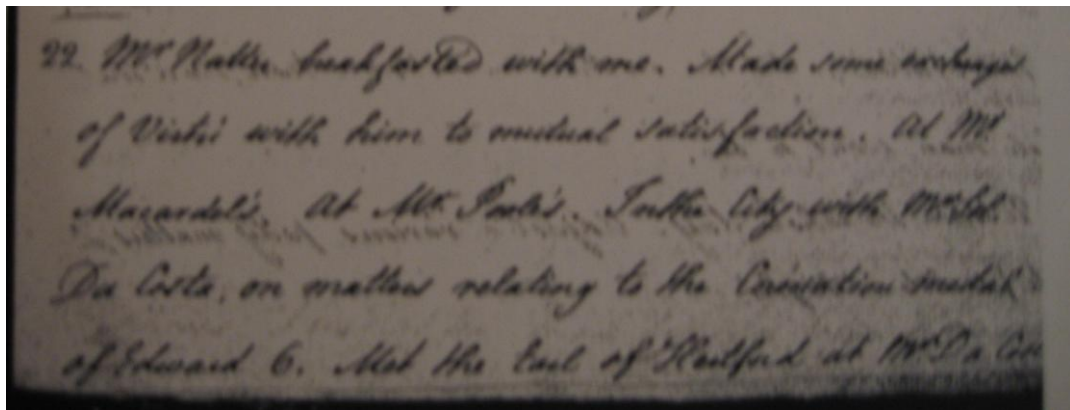 22 Mr Natter breakfasted with me. Made some exchanges
of Virtú with him to mutual satisfaction. At Mr
Macardel's. At Mr. In the City with Mr
Da Costa, on matters relating to the Coronation medal
of Edward 6. Met the Earl of Hertford at Mr Da